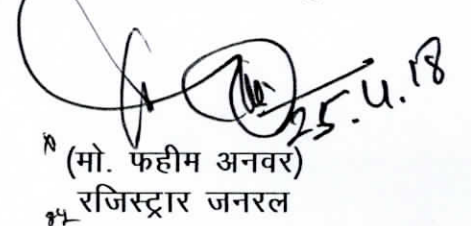 25.4.18
(मो. फहीम अनवर)
रजिस्ट्रार जनरल